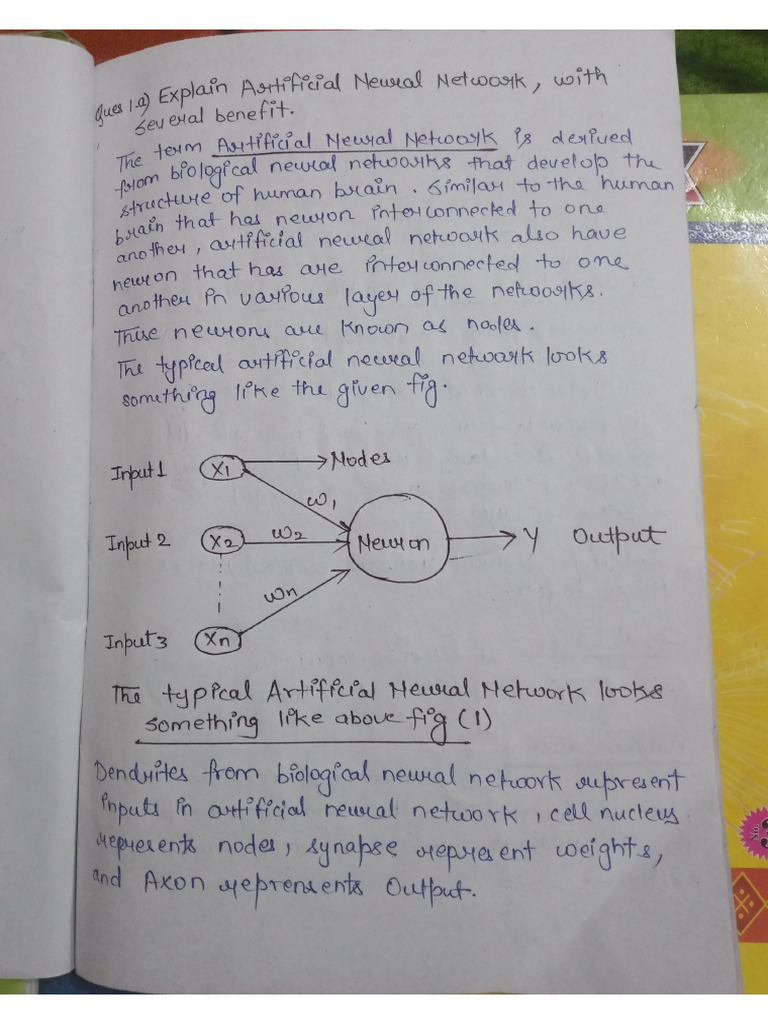 Ques 1.a) Explain Artificial Neural Network, with
several benefit.
The term Artificial Neural Network is derived
from biological neural networks that develop the
structure of human brain. Similar to the human
brain that has neuron interconnected to one
another, artificial neural network also have
neuron that has are interconnected to one
another in various layer of the networks.
These neurons are known as nodes.
The typical artificial neural network looks
something like the given fig.
Input 1 X1 Nodes
w1
Input 2 X2 w2 Neuron Y Output
wn
Input 3 Xn
The typical Artificial Neural Network looks
something like above fig (1)
Dendrites from biological neural network represent
inputs in artificial neural network, cell nucleus
represents nodes, synapse represent weights,
and Axon reprensents Output.